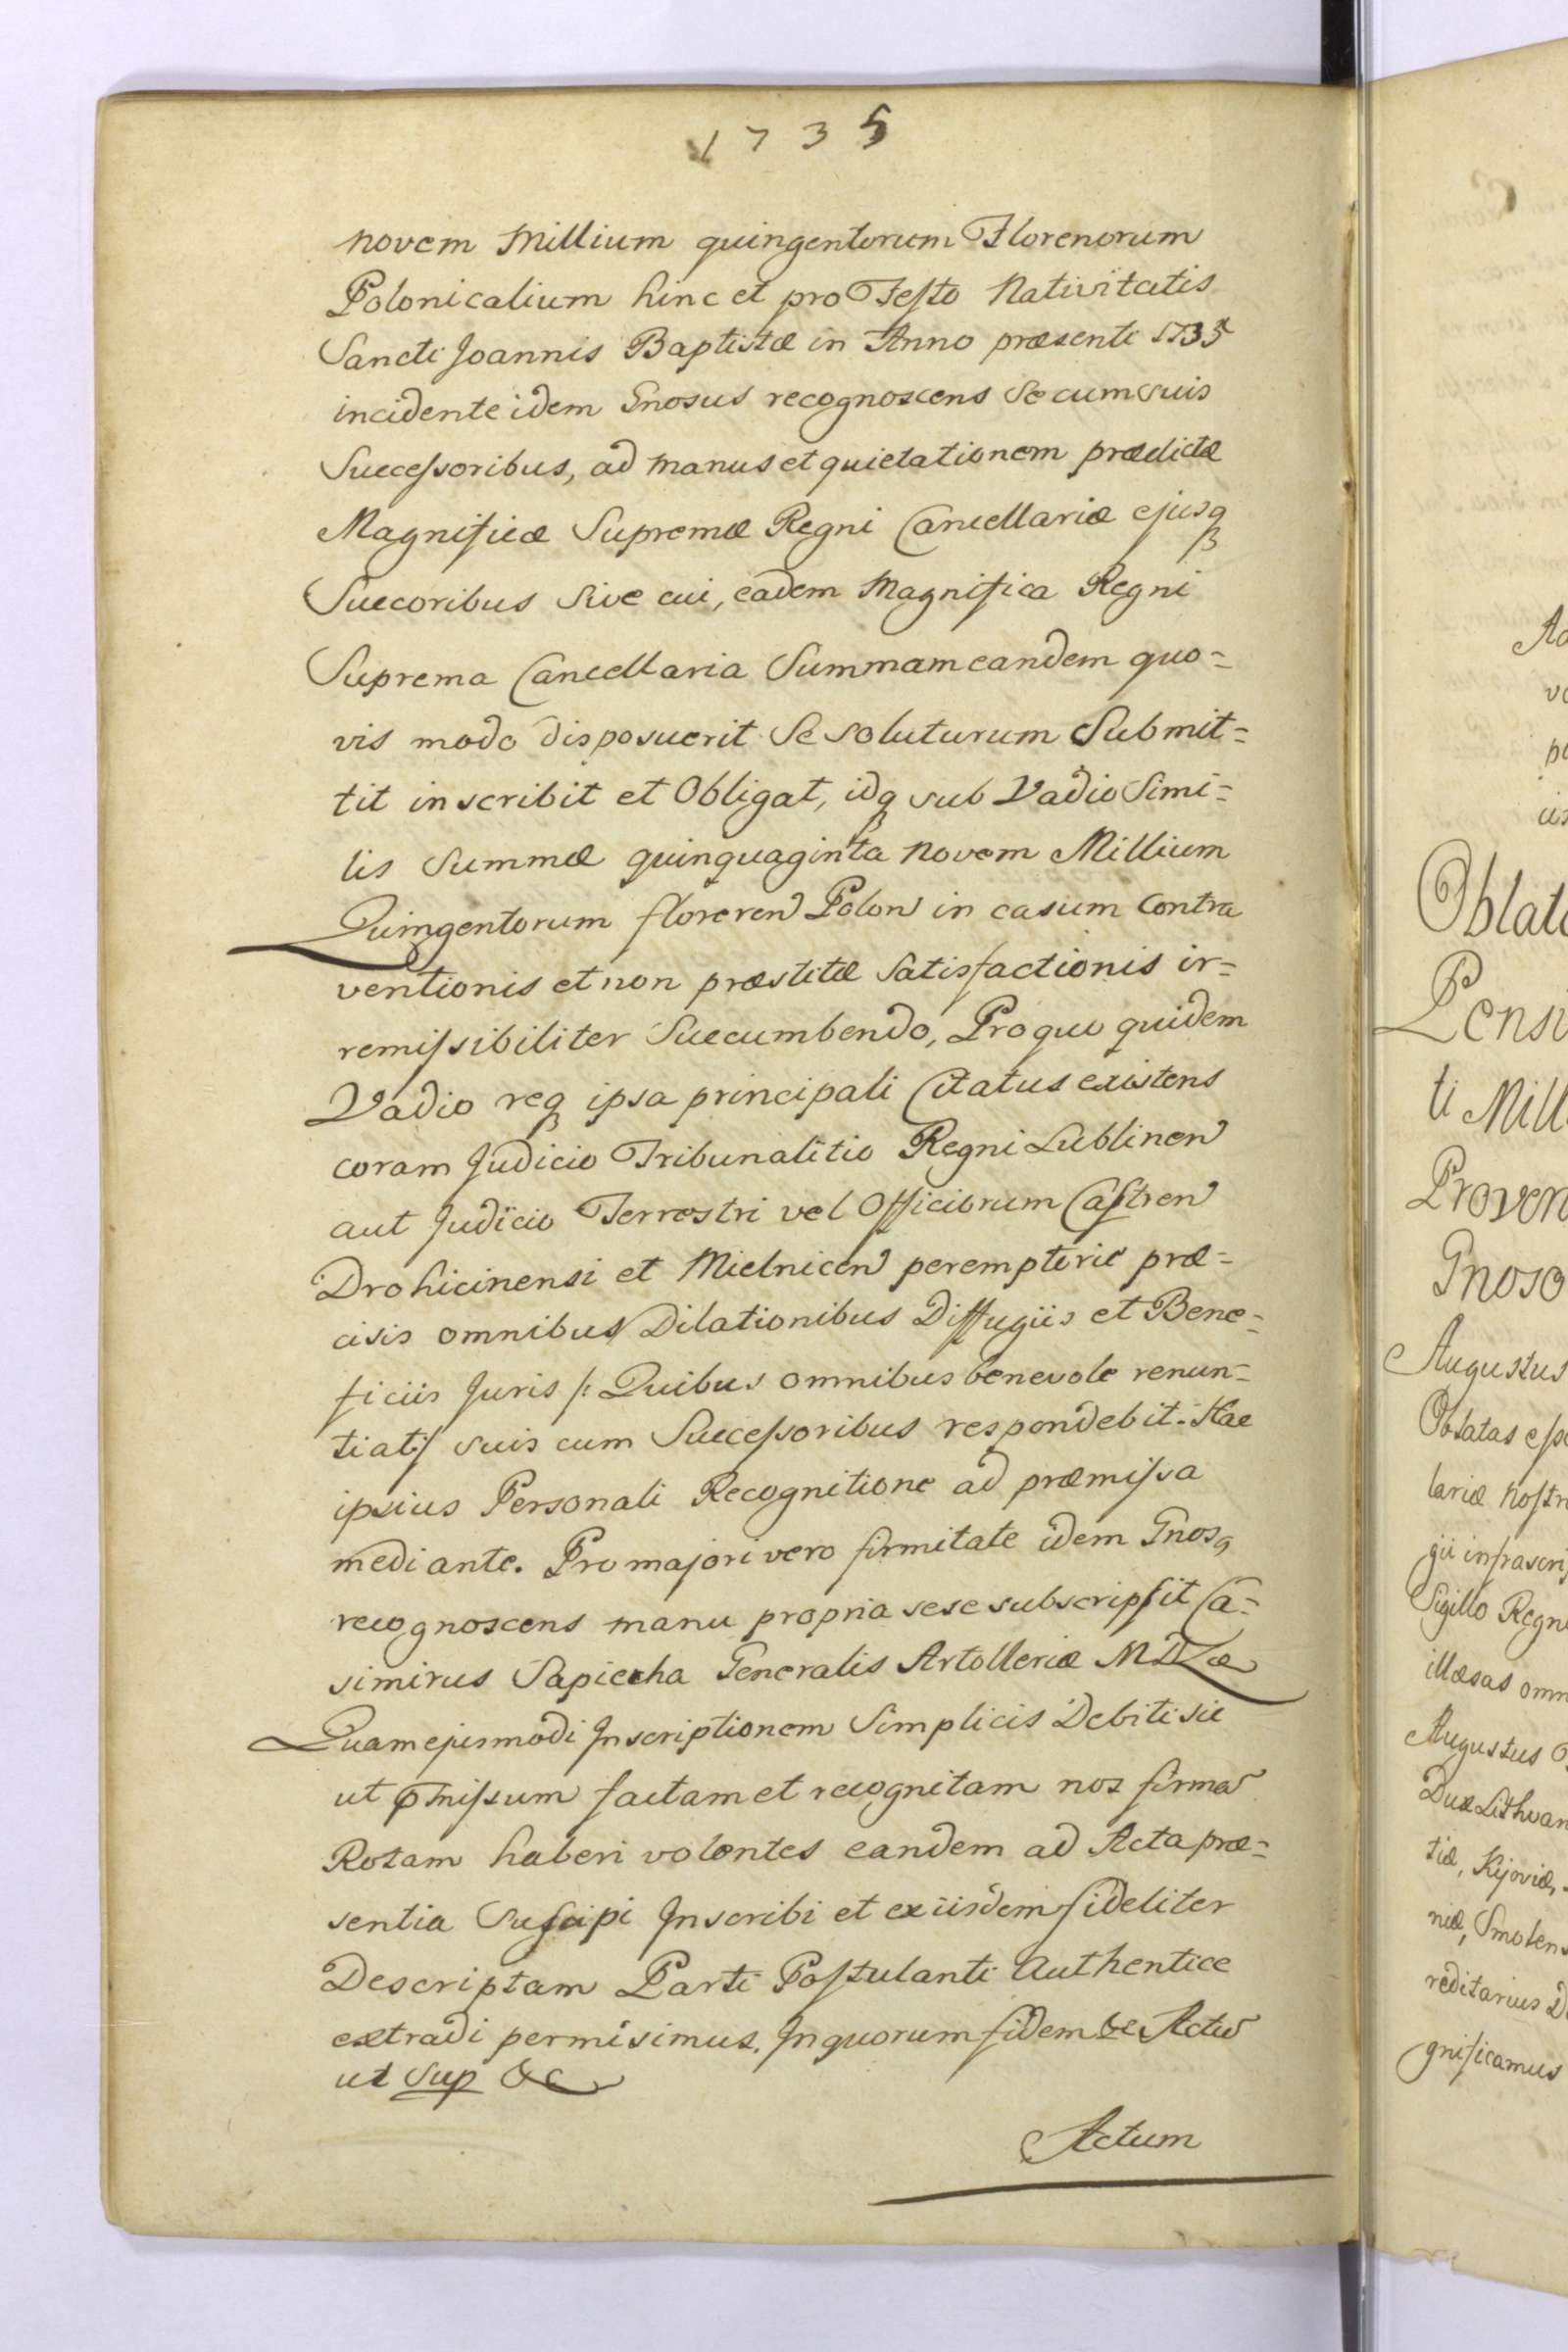 1735
novem Millium quingentorum Florenorum
Polonicalium hinc et pro Festo Nativitatis
Sancti Joannis Baptistæ in Anno præsente 1735
incidente idem Gnosus recognoscens se cum suis
Successoribus, ad manus et quietationem prædictæ
Magnificæ Supremæ Regni Cancellariæ ejusq
Succoribus Sive cui, eadem Magnifica Regni
Suprema Cancellaria Summam eandem quo=
vis modo disposuerit Se soluturum Submit=
tit inscribit et Obligat, idq sub Vadio Simi=
lis Summæ quinquaginta novem Millium
Quingentorum floreren Polon in casum Contra
ventionis et non præstitæ Satisfactionis ir=
remissibiliter Succumbendo, Pro quo quidem
Vadio req ipsa principali Citatus existens
coram Judicio Tribunalitio Regni Lublinen
aut Judicio Terrestri vel Officiorum Castren
Drohicinensi et Mielnicen peremptorie præ=
cisis omnibus Dilationibus Diffugiis et Bene=
ficiis Juris /: Quibus omnibus benevole renun=
tiat:/ suis cum Successoribus respondebit. Hac
ipsius Personali Recognitione ad præmissa
mediante. Pro majori vero firmitate idem Gnosq
recognoscens manu propria sese subscripsit Ca=
simirus Sapiecha Generalis Artolleriæ MDLæ
Quam ejusmodi Inscriptionem Simplicis Debiti sic
ut pmissum factam et recognitam nos firma
Rotam haberi volentes eandem ad Acta præ=
sentia Suscipi Inscribi et ex iisdem fideliter
Descriptam Parti Postulanti Authentice
extradi permisimus. In quorum fidem &c Actu
ut Sup &c
Actum
Oblat
Pensi
ti Mill
Proven
Gnoso
Augustus
Oblatas
lariæ nostr
gii infrascri
Sigillo Regn
illæsas omn
Augustus
Dux Lithvan
tiæ, Kijoviæ,
niæ, Smolens
reditarius D
gnificamus